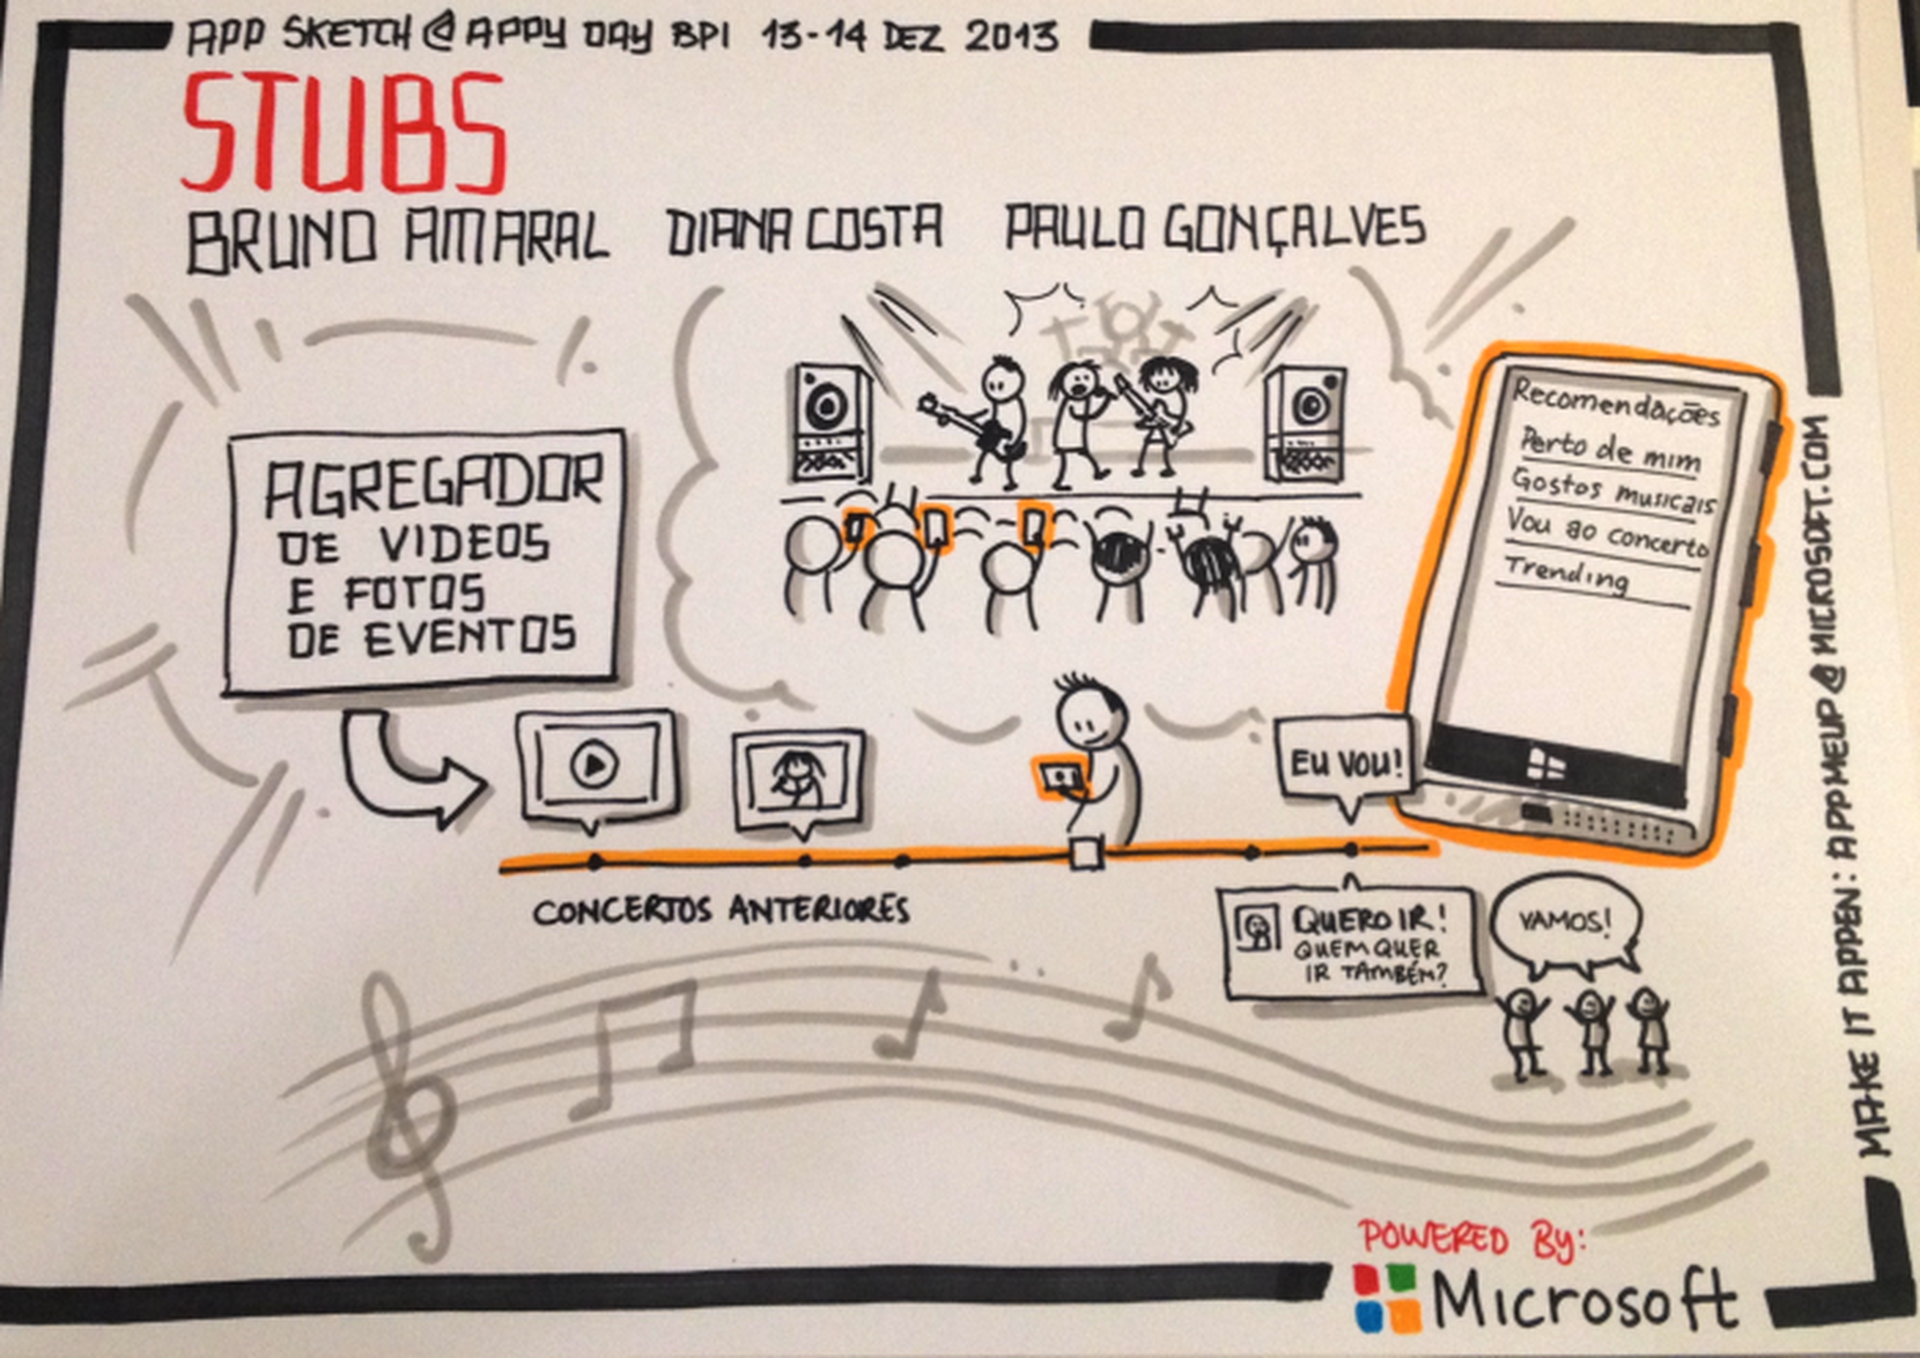 APP SKETCH @ APPY DAY BPI 13-14 DEZ 2013
STUBS
BRUNO AMARAL DIANA COSTA PAULO GONÇALVES
AGREGADOR
DE VIDEOS
E FOTOS
DE EVENTOS
Recomendações
Perto de mim
Gostos musicais
Vou ao concerto
Trending
EU VOU!
CONCERTOS ANTERIORES
QUERO IR!
QUEM QUER
IR TAMBÉM?
VAMOS!
MAKE IT APPEN: APPMEUP@MICROSOFT.COM
POWERED BY:
Microsoft